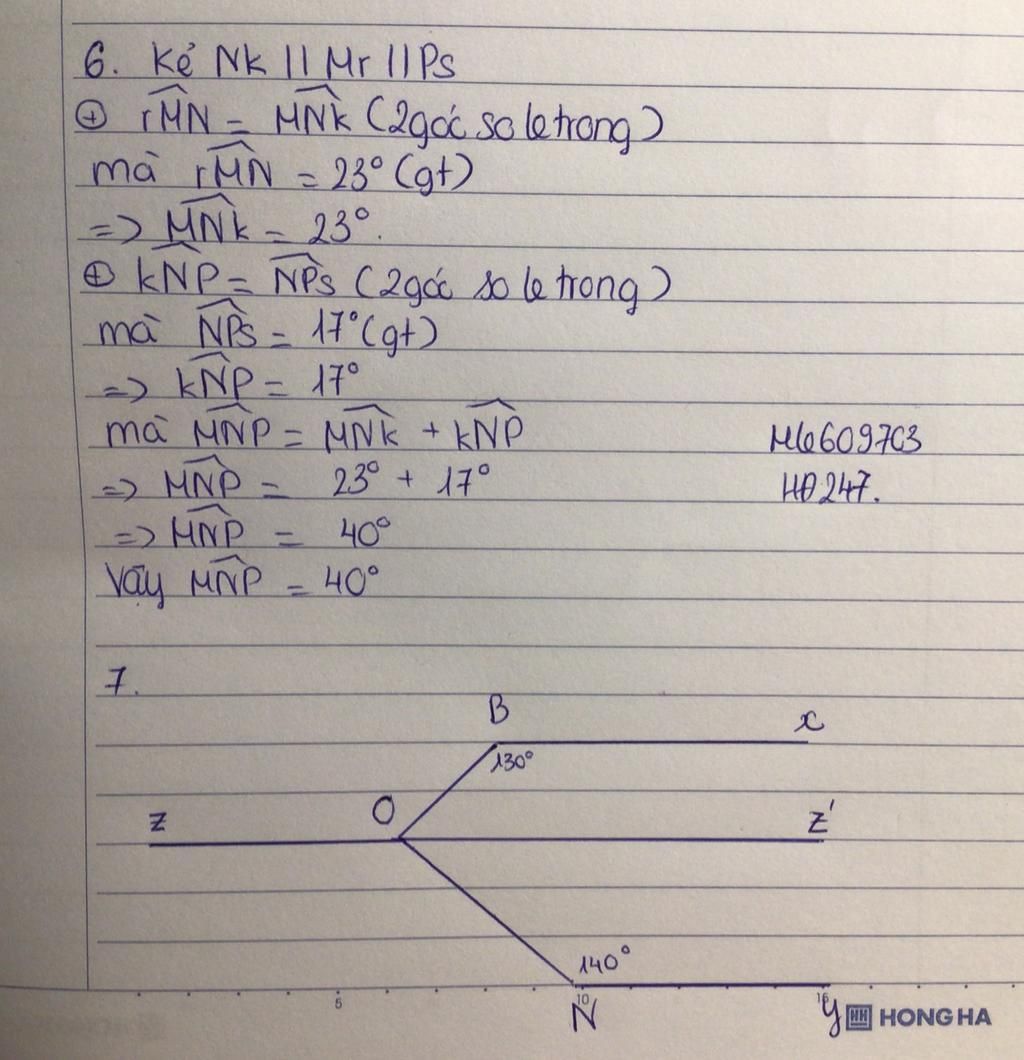 6. Kẻ Nk || Mr || Ps
⊕ rMN = MNk (2góc so le trong)
mà rMN = 23° (gt)
=> MNk = 23°.
⊕ kNP = NPs (2góc so le trong)
mà NPs = 17° (gt)
=> kNP = 17°
mà MNP = MNk + kNP
=> MNP = 23° + 17°
HĐ247.
=> MNP = 40°
Vậy MNP = 40°
7.
B x
130°
z O z'
140°
5 10 15
N y HH HONG HA